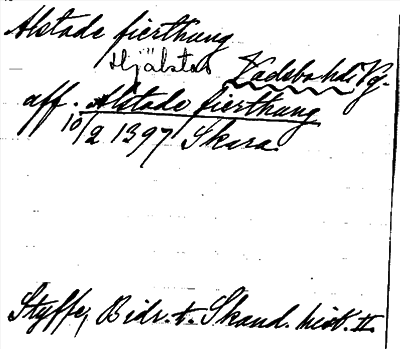 Alstade fierthung
Hjälstad Vadsbo hd Vg.
aff. Alstade fierthung
10/2 1397 Skara.
Styffe, Bidr. t. Skand. hist. II.